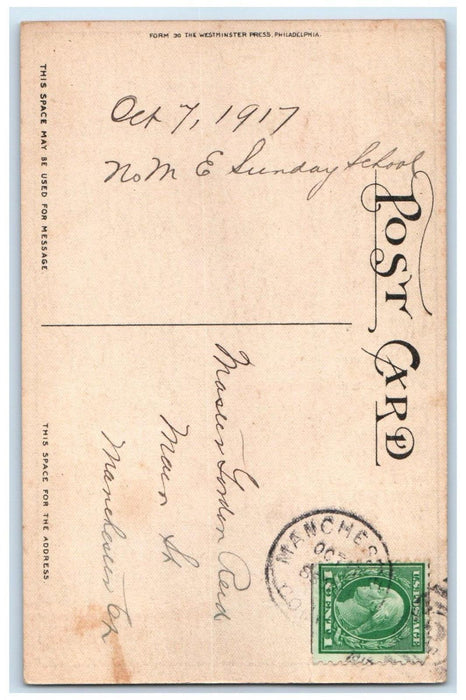 FORM 30 THE WESTMINSTER PRESS, PHILADELPHIA.
POST CARD
THIS SPACE MAY BE USED FOR MESSAGE.
THIS SPACE FOR THE ADDRESS.
Oct 7, 1917
No M E Sunday School
Master Gordon Reed
Main St
Manchester Ct
MANCHES
OCT
CO
U.S. POSTAGE
1 CENT 1